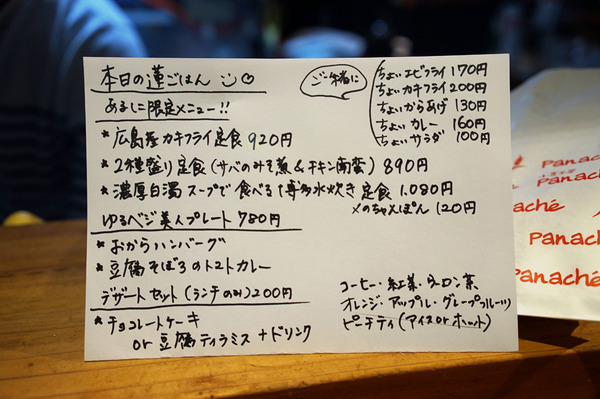 本日の蓮ごはん
あるしに限定メニュー!!
* 広島産カキフライ定食 920円
* 2種盛り定食(サバのみそ煮&チキン南蛮) 890円
* 濃厚白濁スープで食べる博多水炊き定食 1.080円
〆のちゃんぽん 120円
ゆるベジ美人プレート 780円
* おからハンバーグ
* 豆腐そぼろのトマトカレー
デザートセット(ランチのみ)200円
* チョコレートケーキ
or 豆腐ティラミス +ドリンク
ご一緒に
ちょいエビフライ 170円
ちょいカキフライ 200円
ちょいからあげ 130円
ちょいカレー 160円
ちょいサラダ 100円
コーヒー・紅茶・ウーロン茶
オレンジ・アップル・グレープフルーツ
ピーチティ(アイスorホット)
Panach
Panaché
Panaché
Panaché